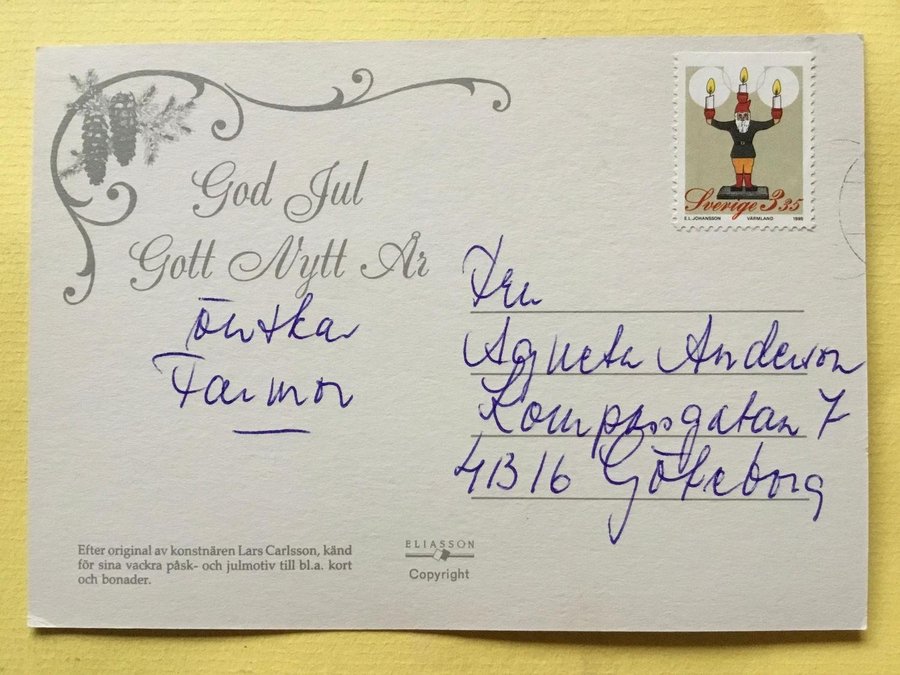 God Jul
Gott Nytt År
önskar
Farmor
Sverige 3.35
E.I. JOHANSSON VÄRMLAND 1998
Frk
Agneta Anderson
Kompassgatan 7
413 16 Göteborg
Efter original av konstnären Lars Carlsson, känd
för sina vackra påsk- och julmotiv till bl.a. kort
och bonader.
ELIASSON
Copyright